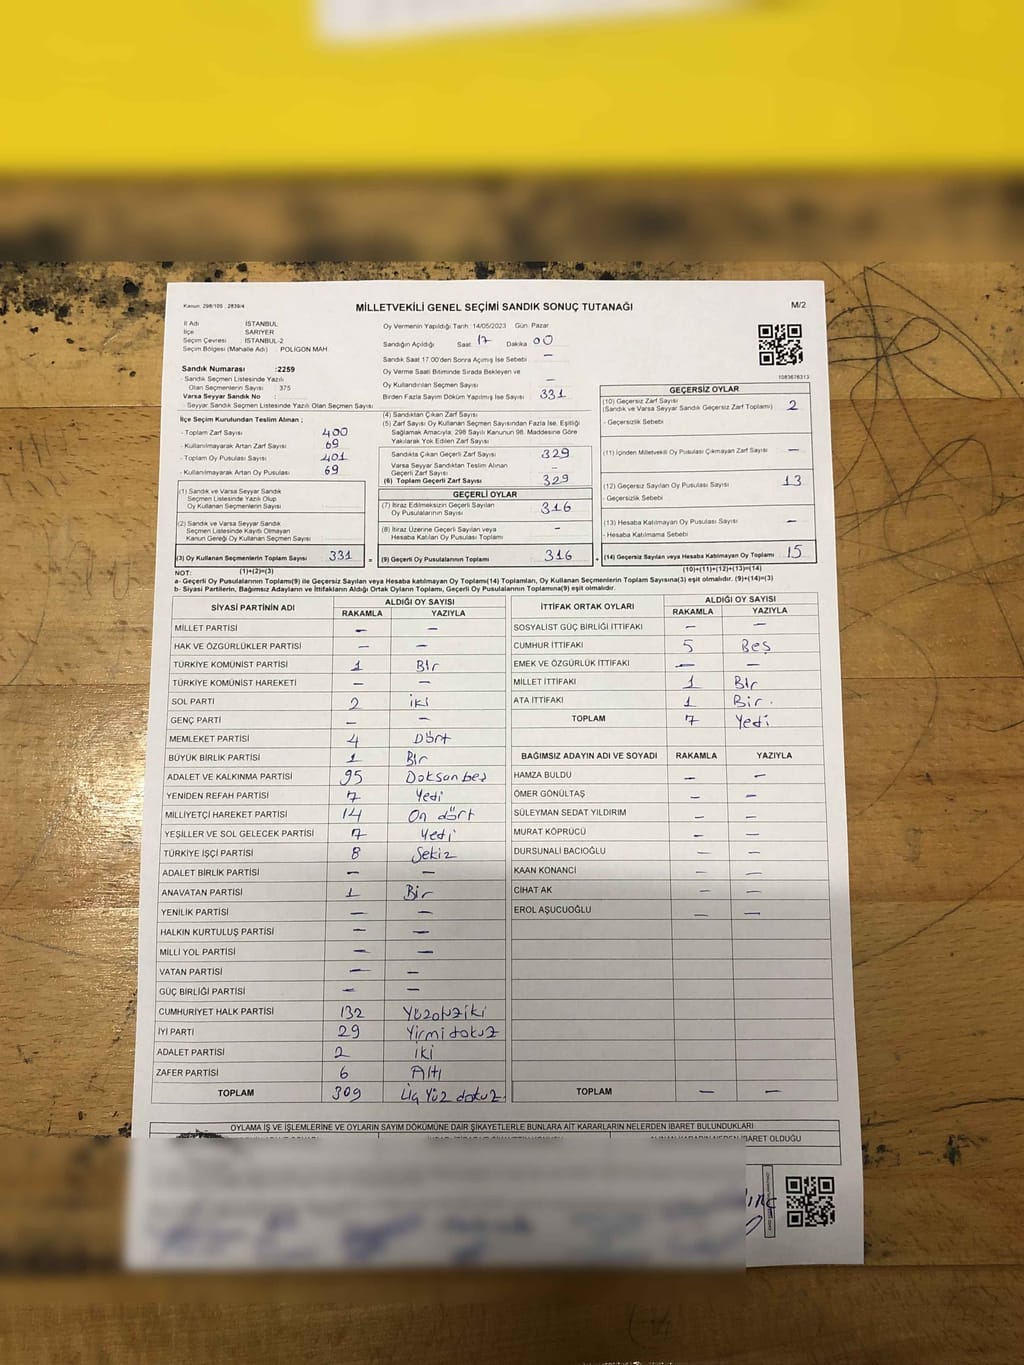 Kanun: 298/105 , 2839/4
MİLLETVEKİLİ GENEL SEÇİMİ SANDIK SONUÇ TUTANAĞI
M/2
İl Adı : İSTANBUL
İlçe : SARIYER
Seçim Çevresi : İSTANBUL-2
Seçim Bölgesi (Mahalle Adı) : POLİGON MAH.
Sandık Numarası :2259
- Sandık Seçmen Listesinde Yazılı
Olan Seçmenlerin Sayısı : 375
Varsa Seyyar Sandık No :
- Seyyar Sandık Seçmen Listesinde Yazılı Olan Seçmen Sayısı
Oy Vermenin Yapıldığı Tarih :14/05/2023 Gün: Pazar
Sandığın Açıldığı Saat: 17 Dakika 00
Sandık Saat 17:00'den Sonra Açımış İse Sebebi : —
Oy Verme Saati Bitiminde Sırada Bekleyen ve
Oy Kullandırılan Seçmen Sayısı —
Birden Fazla Sayım Döküm Yapılmış İse Sayısı : 331
1083676313
İlçe Seçim Kurulundan Teslim Alınan ;
- Toplam Zarf Sayısı 400
- Kullanılmayarak Artan Zarf Sayısı 69
- Toplam Oy Pusulası Sayısı 401
- Kullanılmayarak Artan Oy Pusulası 69
(1) Sandık ve Varsa Seyyar Sandık
Seçmen Listesinde Yazılı Olup
Oy Kullanan Seçmenlerin Sayısı
(2) Sandık ve Varsa Seyyar Sandık
Seçmen Listesinde Kayıtlı Olmayan
Kanun Gereği Oy Kullanan Seçmen Sayısı
(3) Oy Kullanan Seçmenlerin Toplam Sayısı 331
(1)+(2)=(3)
(4) Sandıktan Çıkan Zarf Sayısı
(5) Zarf Sayısı Oy Kullanan Seçmen Sayısından Fazla İse, Eşitliği
Sağlamak Amacıyla; 298 Sayılı Kanunun 98. Maddesine Göre
Yakılarak Yok Edilen Zarf Sayısı
Sandıkta Çıkan Geçerli Zarf Sayısı 329
Varsa Seyyar Sandıktan Teslim Alınan
Geçerli Zarf Sayısı –
(6) Toplam Geçerli Zarf Sayısı 329
GEÇERLİ OYLAR
(7) İtiraz Edilmeksizin Geçerli Sayılan
Oy Pusulalarının Sayısı 316
(8) İtiraz Üzerine Geçerli Sayılan veya
Hesaba Katılan Oy Pusulası Sayısı –
= (9) Geçerli Oy Pusulalarının Toplamı 316
GEÇERSİZ OYLAR
(10) Geçersiz Zarf Sayısı
(Sandık ve Varsa Seyyar Sandık Geçersiz Zarf Toplamı) 2
- Geçersizlik Sebebi
(11) İçinden Milletvekili Oy Pusulası Çıkmayan Zarf Sayısı —
(12) Geçersiz Sayılan Oy Pusulası Sayısı 13
- Geçersizlik Sebebi
(13) Hesaba Katılmayan Oy Pusulası Sayısı —
- Hesaba Katılmama Sebebi
+ (14) Geçersiz Sayılan veya Hesaba Katılmayan Oy Toplamı 15
(10)+(11)+(12)+(13)=(14)
NOT:
a- Geçerli Oy Pusulalarının Toplamı(9) ile Geçersiz Sayılan veya Hesaba katılmayan Oy Toplam(14) Toplamları, Oy Kullanan Seçmenlerin Toplam Sayısına(3) eşit olmalıdır. (9)+(14)=(3)
b- Siyasi Partilerin, Bağımsız Adayların ve İttifakların Aldığı Ortak Oyların Toplamı, Geçerli Oy Pusulalarının Toplamına(9) eşit olmalıdır.
SİYASİ PARTİNİN ADI ALDIĞI OY SAYISI
RAKAMLA YAZIYLA
MİLLET PARTİSİ — —
HAK VE ÖZGÜRLÜKLER PARTİSİ — —
TÜRKİYE KOMÜNİST PARTİSİ 1 Bir
TÜRKİYE KOMÜNİST HAREKETİ — —
SOL PARTİ 2 iki
GENÇ PARTİ — —
MEMLEKET PARTİSİ 4 Dört
BÜYÜK BİRLİK PARTİSİ 1 Bir
ADALET VE KALKINMA PARTİSİ 95 Doksan beş
YENİDEN REFAH PARTİSİ 7 Yedi
MİLLİYETÇİ HAREKET PARTİSİ 14 On dört
YEŞİLLER VE SOL GELECEK PARTİSİ 7 Yedi
TÜRKİYE İŞÇİ PARTİSİ 8 Sekiz
ADALET BİRLİK PARTİSİ — —
ANAVATAN PARTİSİ 1 Bir
YENİLİK PARTİSİ — —
HALKIN KURTULUŞ PARTİSİ — —
MİLLİ YOL PARTİSİ — —
VATAN PARTİSİ — —
GÜÇ BİRLİĞİ PARTİSİ — —
CUMHURİYET HALK PARTİSİ 132 Yüzotuziki
İYİ PARTİ 29 Yirmidokuz
ADALET PARTİSİ 2 iki
ZAFER PARTİSİ 6 Altı
TOPLAM 309 Üç Yüz dokuz
İTTİFAK ORTAK OYLARI ALDIĞI OY SAYISI
RAKAMLA YAZIYLA
SOSYALİST GÜÇ BİRLİĞİ İTTİFAKI — —
CUMHUR İTTİFAKI 5 Beş
EMEK VE ÖZGÜRLÜK İTTİFAKI — —
MİLLET İTTİFAKI 1 Bir
ATA İTTİFAKI 1 Bir.
TOPLAM 7 Yedi
BAĞIMSIZ ADAYIN ADI VE SOYADI RAKAMLA YAZIYLA
HAMZA BULDU — —
ÖMER GÖNÜLTAŞ — —
SÜLEYMAN SEDAT YILDIRIM — —
MURAT KÖPRÜCÜ — —
DURSUNALİ BACIOĞLU — —
KAAN KONANCİ — —
CİHAT AK — —
EROL AŞUCUOĞLU — —
TOPLAM — —
OYLAMA İŞ VE İŞLEMLERİNE VE OYLARIN SAYIM DÖKÜMÜNE DAİR ŞİKAYETLERLE BUNLARA AİT KARARLARIN NELERDEN İBARET BULUNDUKLARI